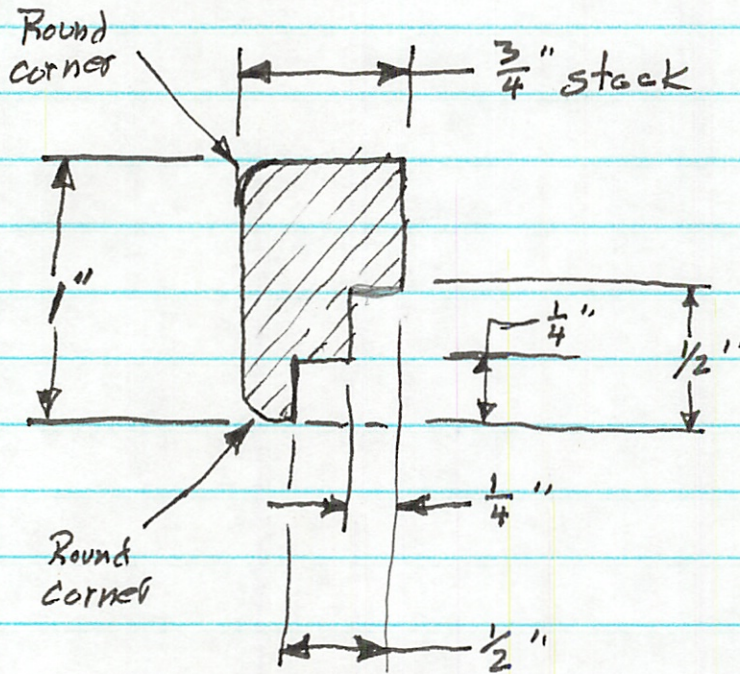 Round
corner
3/4" stock
1"
1/4"
1/2"
1/4"
Round
corner
1/2"